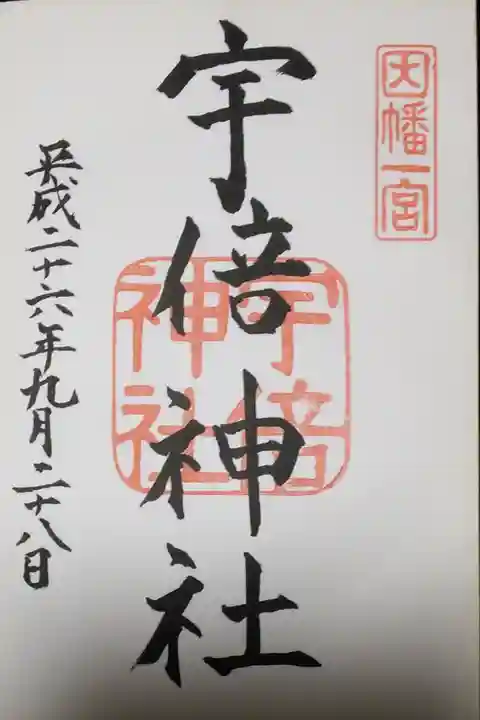 因幡一宮
宇倍神社
宇倍
神社
平成二十六年九月二十八日